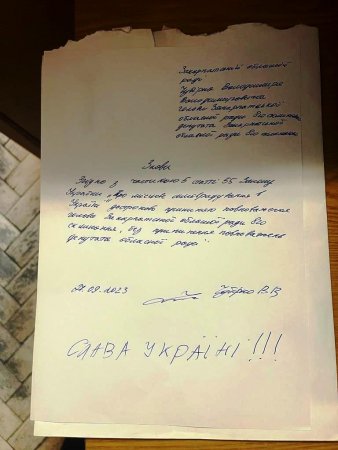 Закарпатській обласній
раді
Чубірко Володимира
Володимировича
голови Закарпатської
обласної ради VIII скликання,
депутата Закарпатської
обласної ради VIII скликання
Заява
Згідно з частиною 5 статті 55 Закону
України "Про місцеве самоврядування в
Україні" достроково припиняю повноваження
голови Закарпатської обласної ради VIII
скликання, без припинення повноважень
депутата обласної ради.
09.2023 Чубірко В.В
СЛАВА УКРАЇНІ!!!